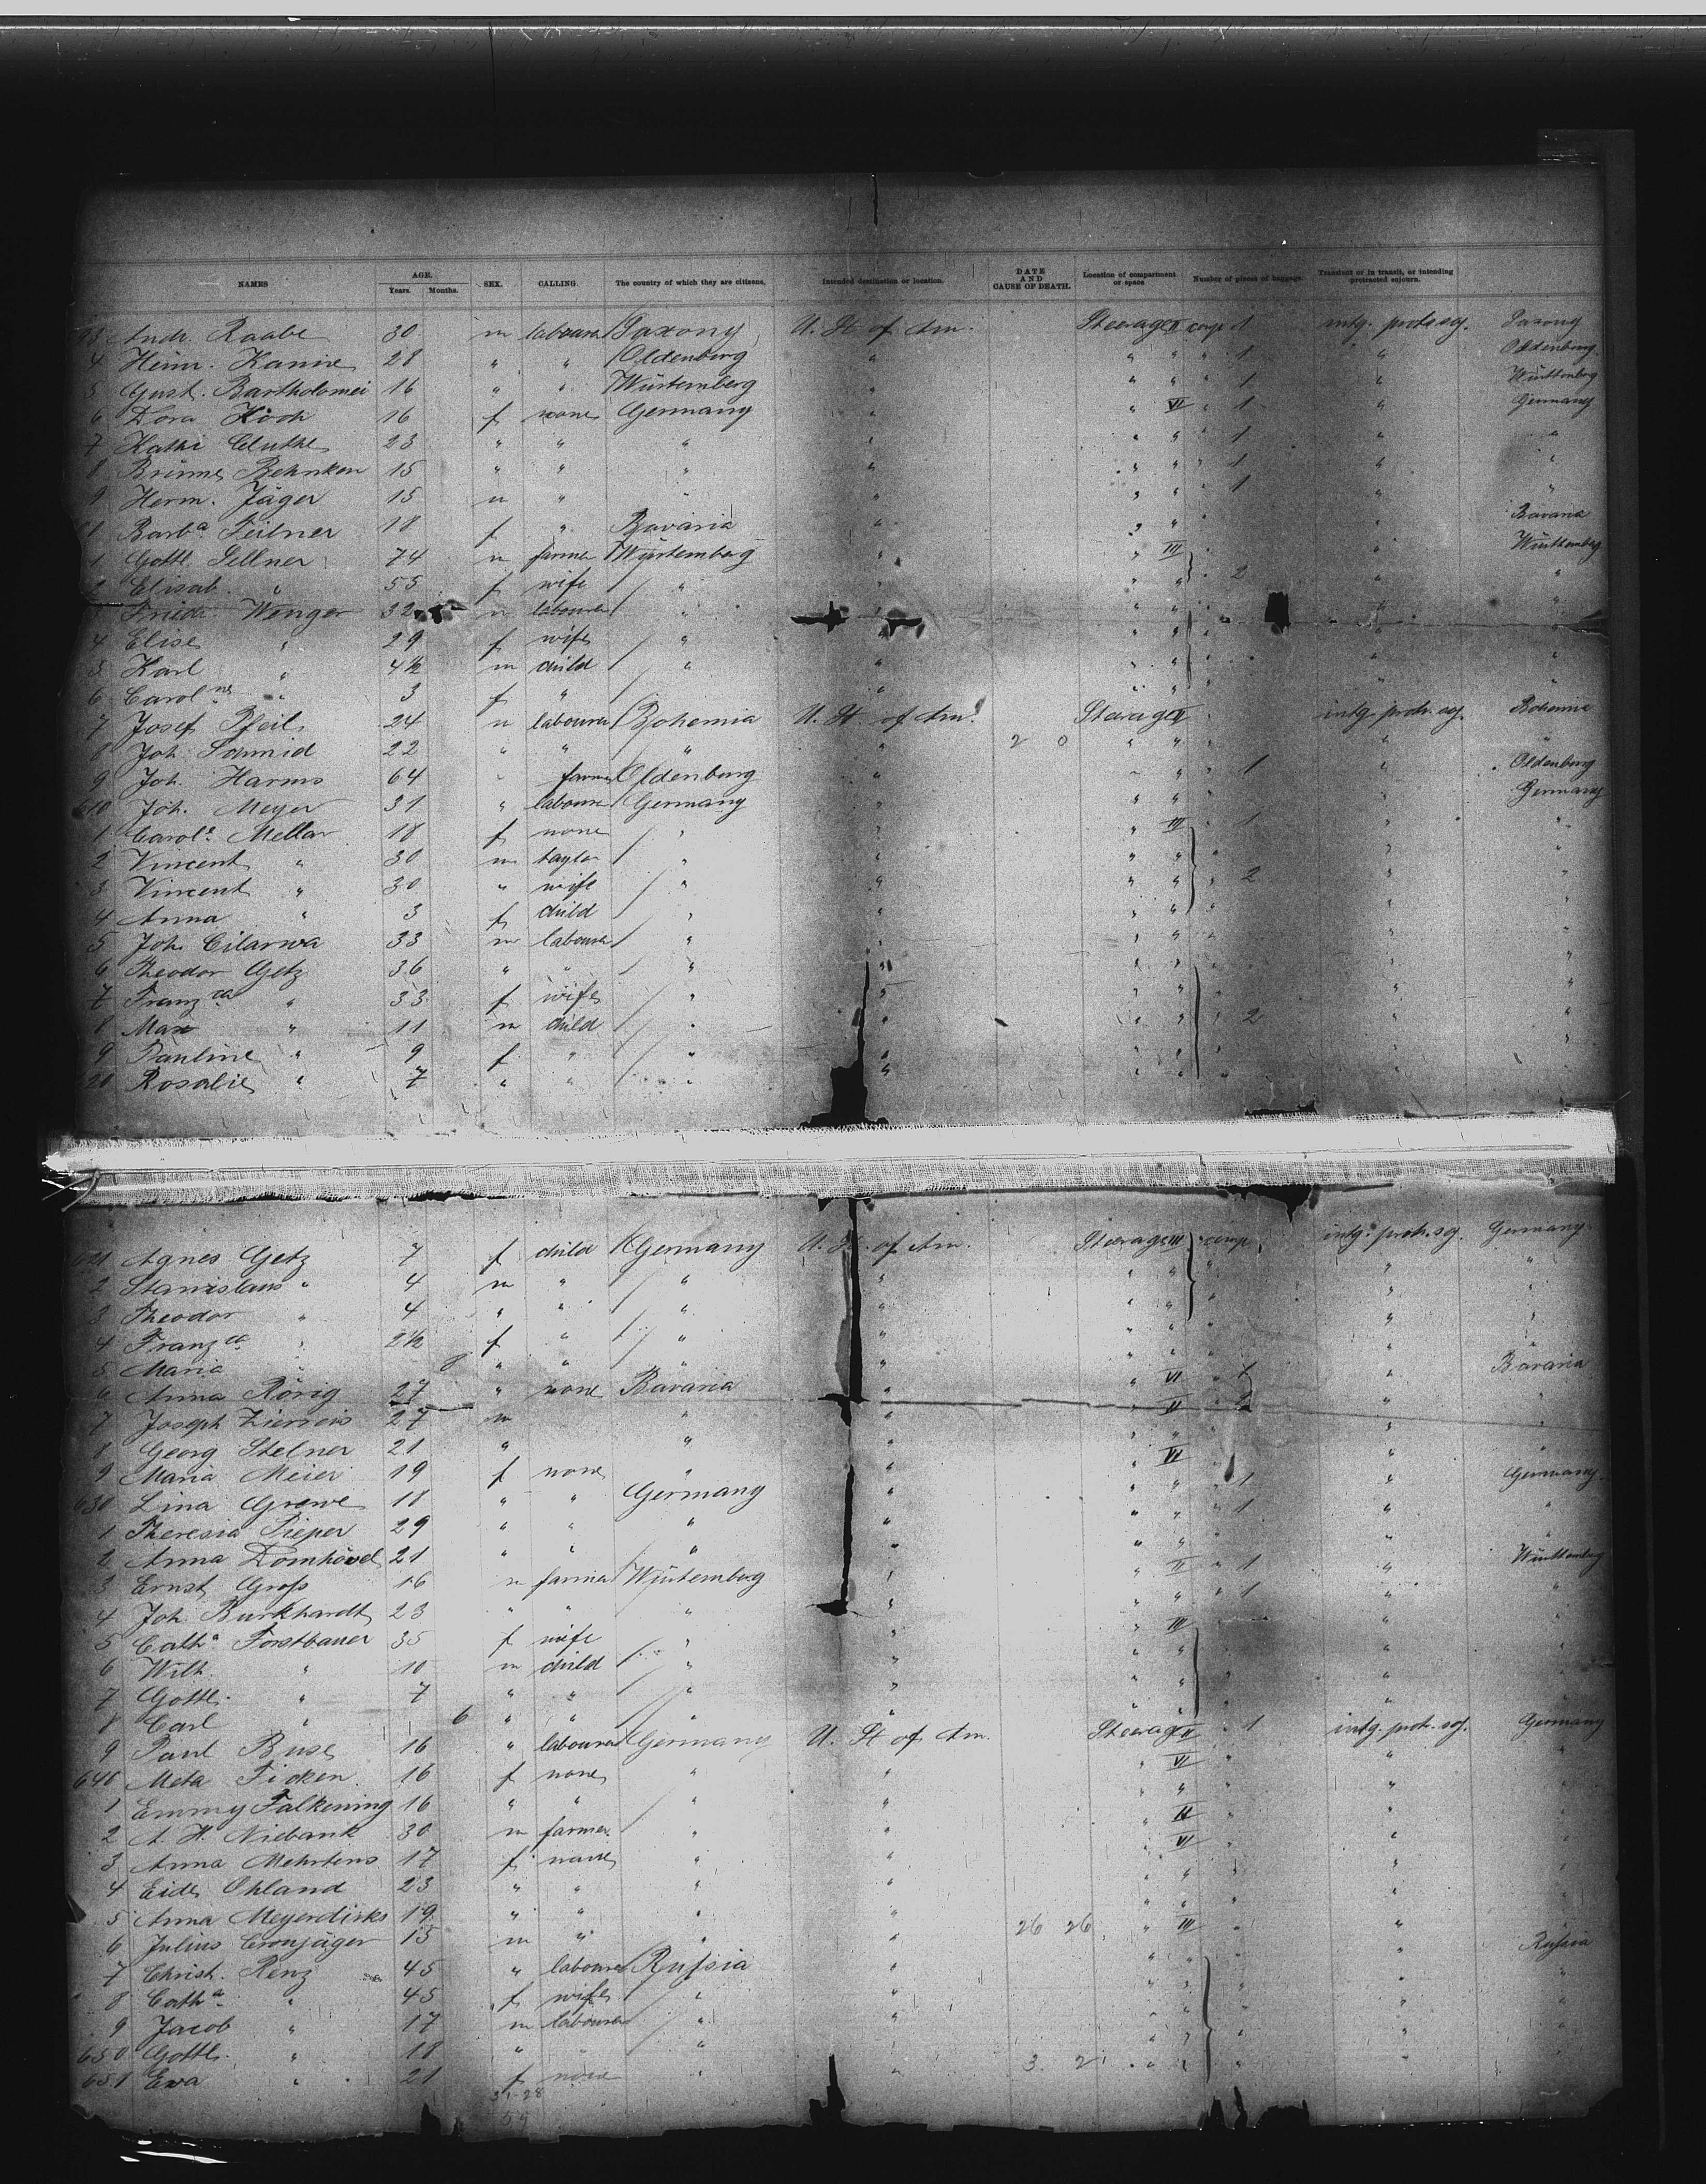 NAMES AGE. Years. Months. SEX. CALLING The country of which they are citizens. Intended destination or location. DATE AND CAUSE OF DEATH. Location of compartment or space Number of pieces of baggage. Transient or in transit, or intending protracted sojourn.
Andr. Raabe 30 m labourer Saxony U. St of Am. Steerage II comp 1 intg. protr. soj. Saxony
4 Heinr. Kanire 28 " " Oldenburg " " " " 1 " Oldenburg
5 Gust. Bartholomei 16 " " Würtemberg " " " " 1 " Württemberg
6 Dora Koch 16 f none Germany " " VI " 1 " Germany
7 Kathi Cluthe 23 " " " " " " 1 " "
8 Behnken 15 " " " " " " 1 " "
9 Herm. Jäger 15 m " " " " " 1 " "
Barbª. Feilner 18 f " Bavaria " " " " Bavaria
1 Gottl. Sellner 74 m farmer Würtemberg " " III " Württemberg
2 Elisab. " 55 f wife " " " " 2 " "
Frieda. Wenger 32 m labourer " " " " " "
4 Elise " 29 f wife " " " " " " "
5 Karl " 4½ m child " " " " " " "
6 Carolne " 3 f " " " " "
7 Josef Pfeil 24 m labourer Bohemia U. St. of Am. Steerage II intg. protr. soj. Bohemia
8 Joh. Schmid 22 " " " " 2 0 " " " " "
9 Joh. Harms 64 " farmer Oldenburg " " " 1 " Oldenburg
610 Joh. Meyer 31 " labourer Germany " " " " Germany
1 Carolª. Mellar 18 f none " " " III 1 " "
2 Vincent " 30 m taylor " " " " " " "
3 Vincent " 30 " wife " " " " " 2 " "
4 Anna " 3 f child " " " " " " "
5 Joh. Cilarwa 33 m labourer " " " " " " "
6 Theodor Getz 36 " " " " " " " "
7 Franzca " 33 f wife " " " " " " "
8 Max " 11 m child " " " " " 2 " "
9 Pauline " 9 f " " " " " " "
20 Rosalie " 7 " " " "
621 Agnes Getz 7 f child Germany U. St. of Am. Steerage III comp. intg. protr. soj. Germany
2 Stanislaus " 4 m " " " " " " " "
3 Theodor " 4 " " " " " " " " "
4 Franzca " 2½ f " " " " " " " "
5 Maria " 8 " " " " " " " "
6 Anna Rörig 27 " none Bavaria " " VI " 1 " Bavaria
7 Joseph Zierreis 27 m " " " II 2 " "
8 Georg Stelner 21 " " " " " " "
9 Maria Meier 19 f none " " " VI " "
630 Lina Grewe 18 " " Germany " " " " 1 " Germany
1 Theresia Pieper 29 " " " " " " " 1 " "
2 Anna Domhövel 21 " " " " " " "
3 Ernst Groß 16 m farmer Würtemberg " " II " 1 " Württemberg
4 Joh. Burkhardt 23 " " " " " " " 1 " "
5 Cathª. Forstbauer 35 f wife " " " III "
6 Wilh. " 10 m child " " " " "
7 Gottl. " 7 " " " " " " "
8 Carl " 6 " " " " " " "
9 Paul Buse 16 " labourer Germany U. St of Am. Steerage II 1 intg. protr. soj. Germany
640 Meta Ficken 16 f none " " " VI "
1 Emmy Falkening 16 " " " " " " "
2 A. H. Niebank 30 m farmer " " " II " "
3 Anna Mehrtens 17 f none " " " VI " "
4 Eide Ohland 23 " " " " " " "
5 Anna Meyerdirks 19 " " " " " " " "
6 Julius Cronjäger 15 m " " " 26 26 " III " "
7 Christ. Renz 45 " labourer Rußia " " " " Rußia
8 Cathª. " 45 f wife " " " " " "
9 Jacob " 17 m labourer " " " " " "
650 Gottl. " 18 " " " " " " "
651 Eva " 21 f none " " 3 2 " " " "
31-28
59